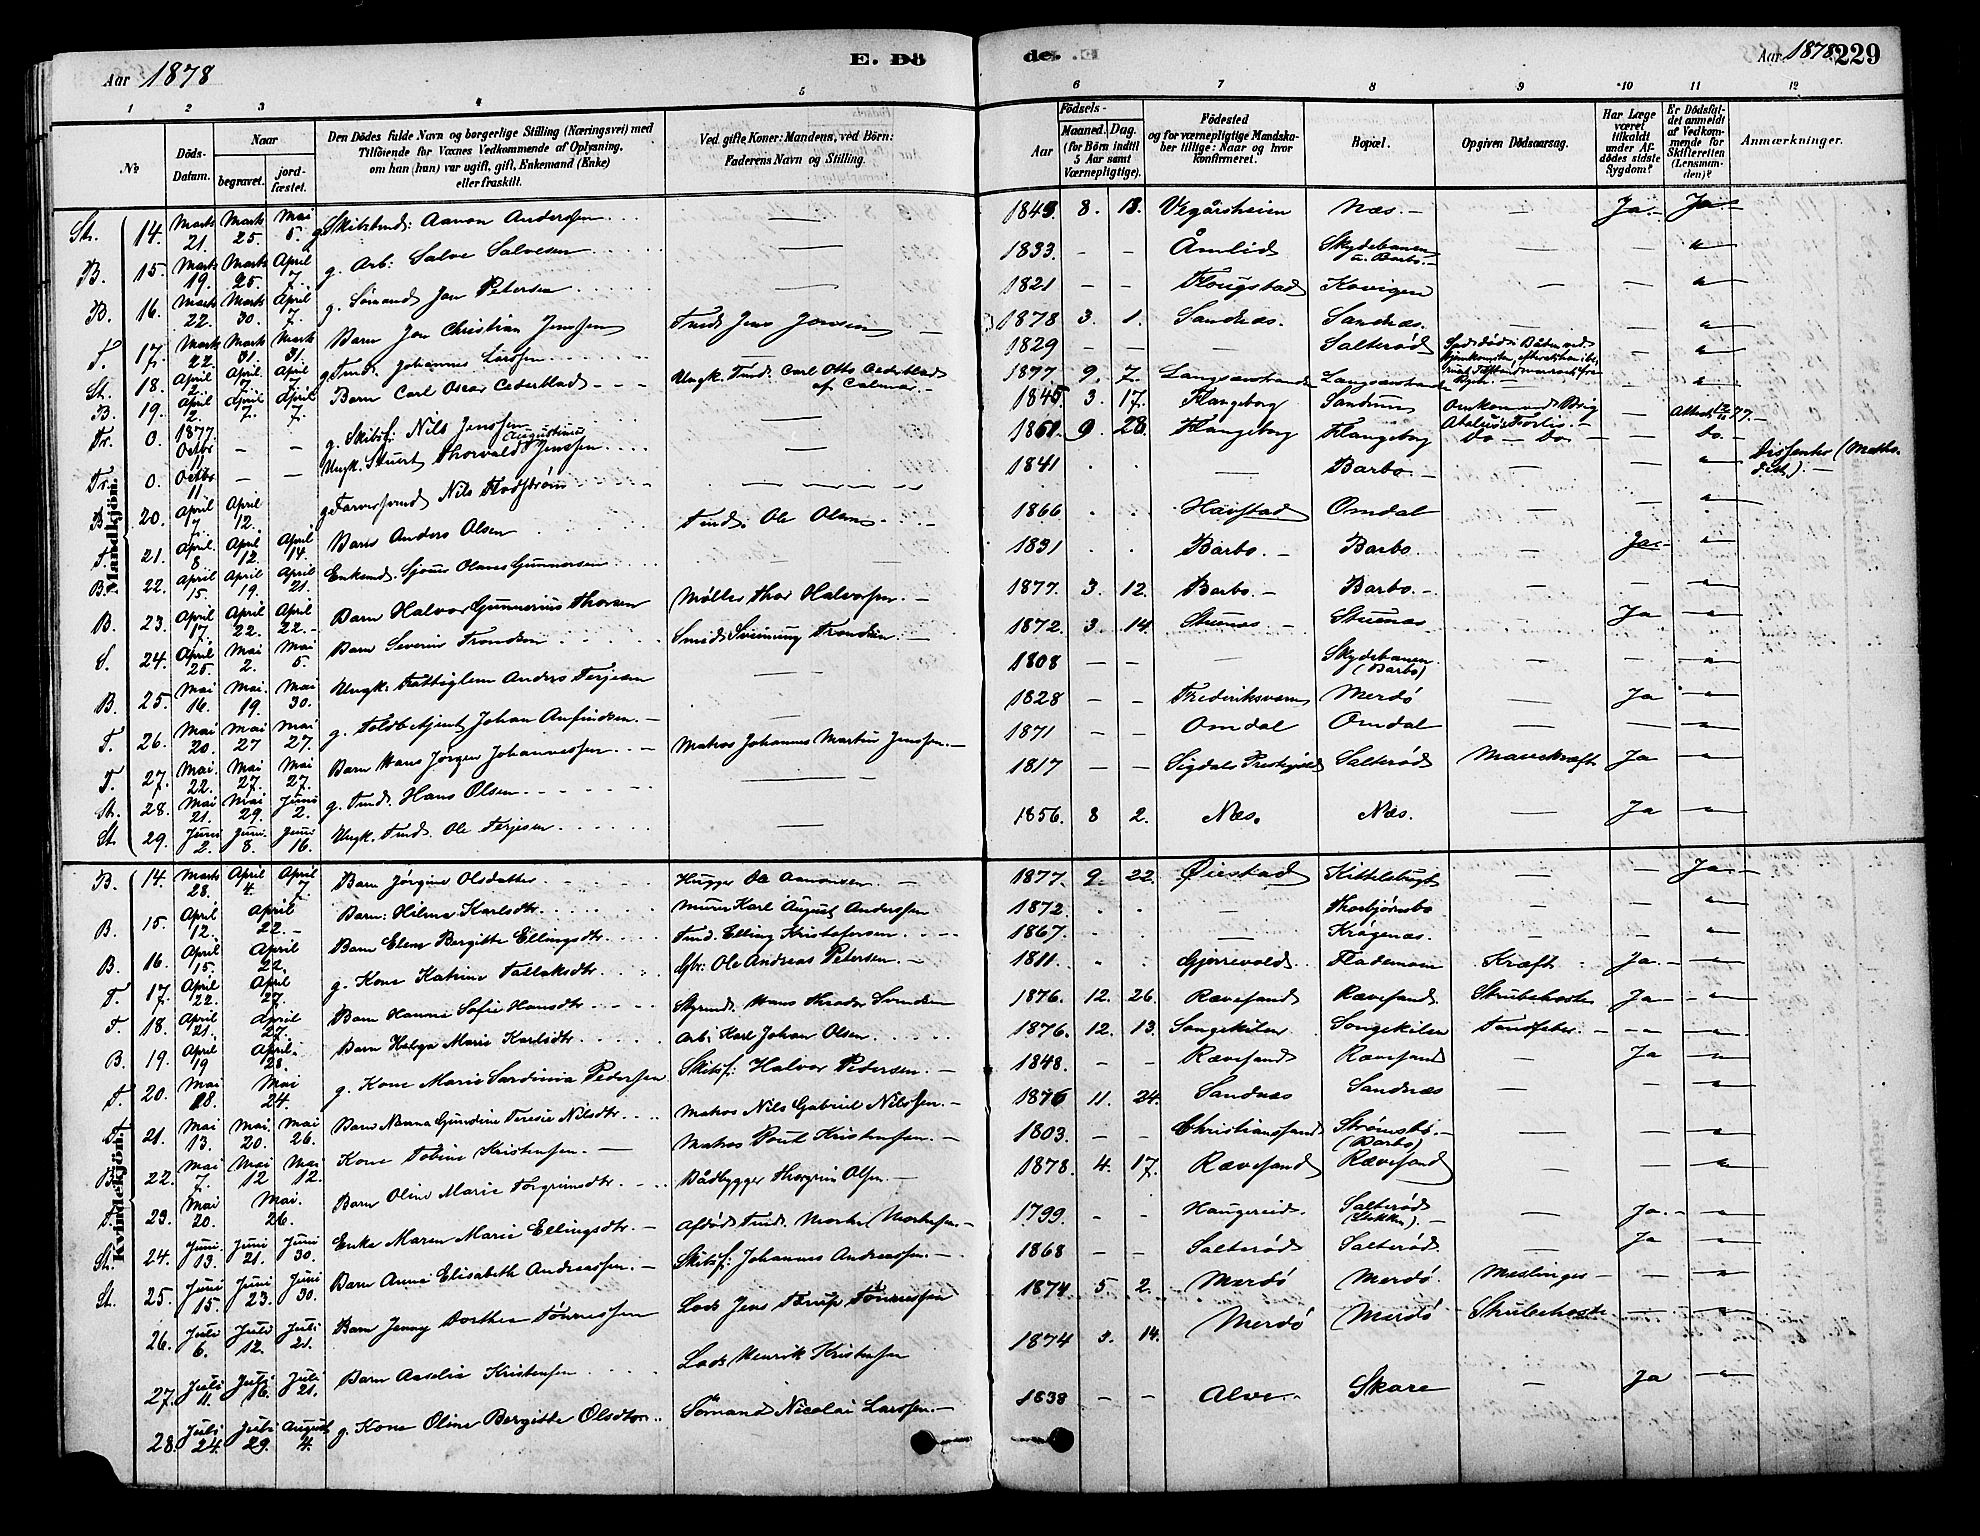 Aar 1878
E. Dö
de.
Aar 1878
229
1 2 3 4 5
6 7 8 9 10 11 12
No
Döds-Datum.
Naar
begravet.
jord-fæstet.
Den Dödes fulde Navn og borgerlige Stilling (Næringsvei) med
Tilföiende for Voxnes Vedkommende af Oplysning,
om han (hun) var ugift, gift, Enkemand (Enke)
eller fraskilt.
Ved gifte Koner: Mandens, ved Börn:
Faderens Navn og Stilling.
Födsels-
Aar
Maaned. Dag.
(for Börn indtil
5 Aar samt
Værnepligtige).
Födested
og for værnepligtige Mandska-
ber tillige: Naar og hvor
konfirmeret.
Bopæl.
Opgiven Dödsaarsag.
Har Læge
været
tilkaldt
under Af-
dödes sidste
Sygdom?
Er Dödsfal-
det anmeldt
af Vedkom-
mende for
Skifteretten
(Lensman-
den)?
Anmærkninger.
Mandkjön.
St. 14. Marts 21. Marts 25. Mai 5. g. Skibstmd: Aanon Anderssen — 1849. 8. 13. Vegårsheien Næs. — — Ja. — Ja. —
B. 15. Marts 19. Marts 25. April 7. g. Arb: Salve Salvesen — 1833. — — Åmlid Skydebanen a. Barbo. — — — "
B. 16. Marts 22. Marts 30. April 7. g. Sömand Jon Petersen — 1821 — — Flougstad Kovigen — — "
T. 17. Marts 22. Marts 31. Marts 31. Barn Jon Christian Jenssen Tmd. Jens Jonsen — 1878 3. 1. Sandnæs. Sandnæs. — — "
St. 18. April 2. April 7. April 7. g. Tmd. Johannes Larssen — 1829 — — — Salteröd — "
B. 19. April 2. April 7. April 7. Barn Carl Oscar Cederblad Ungk. Tmd. Carl Otto Cederblad af Calmar. — 1877 9. 7. Langsævstranden Langsævstranden — "
Tr. 0. 1877 Octbr 11 — — g. Skibsf: Nils Jenssen — 1845 3. 17. Flangeborg Sandum Omkom med Brig —
Tr. 0. Octbr 11. — — Ungk. Stuert Thorvald Augustinus Jenssen 1861 9. 28. Flangeborg Flangeborg Do — Do — — Do. —
B. 20. April 7. April 12. g. Farversvend Nils Flodström 1841 — Barbo — — — " Dissenter (Metho-dist). —
T. 21. April 8. April 12. April 14. Barn Anders Olsen Tmd. Ole Olsen 1866 Havstad Omdal — "
B. 22. April 15. April 19. April 21. Enkemd. Sjömd Olaves Gunnersen — 1831 Barbo. — Barbo. — Ja. — "
B. 23. April 17. April 22. April 22. — Barn Halvor Gunnerius Thorsen Möller Thor Halvorsen. — 1877. 3. 12. Barbo. — Barbo. — — — "
S. 24. April 25. Mai 2. Mai 5. Barn Severin Trondsen Smed Sveinung Trondsen. — 1872. 3. 14. Stuenæs — Stuenæs — Ja "
B. 25. Mai 16. Mai. 19. Mai 30. Ungk: Fattiglem Anders Terjesen — 1808 — — — Skydebanen. (Barbo) — — "
T. 26. Mai 20. Mai 27 Mai 27. g. Toldbetjent Johan Anfindsen. — 1828 — — Frederiksværn Merdö — Ja "
T. 27. Mai. 22. Mai 27. Mai 27. Barn Hans Jörgen Johannessen Matros Johannes Martin Jenssen. — 1871 — — Omdal Omdal — — "
St. 28. Mai 21. Mai 29. Juni 2. g. Tmd. Hans Olsen — 1817 — — Sigdals Prestegjeld Salteröd Mavekræft Ja "
St. 29. Juni 2. Juni. 8. Juni 16. Ungk. Tmd. Ole Terjesen — 1856. 8 2. Næs. Næs. — Ja "
Kvindekjön.
B. 14. Marts 28. April 4. April 7. Barn Jörgine Olsdatter Hugger Ole Aanonsen. — 1877. 9. 22. Öiestad Kittelsbugt — — Ja. —
B. 15. April 12. April 22. — Barn: Hilma Karlsdtr. Murer Karl August Anderssen 1872. — Thorbjörnsbo — — "
B. 16. April 15. April 22. Barn Elene Bergitte Ellingsdtr. Tmd. Elling Kristofersen. 1867. — Krögenæs. — — "
T. 17. April 22. April 27. g. Kone Katrine Tallaksdtr. Gbr: Ole Andreas Petersen. — 1811. Gjerrevolds Flademoen Kræft Ja. — "
T. 18. April 21. April 27. Barn Hanna Sofie Hansdtr. Styrmd. Hans Thodor Svendsen 1876. 12. 26. Rævesand Rævesand Strubehoste Ja — "
B. 19. April 19 April. 28. Barn Helga Marie Karlsdtr. Arb: Karl Johan Olsen. 1876. 12. 13. Songekilen Songekilen Tandfeber. — — "
T. 20. Mai 18. Mai 24. g. Kone Marie Sardinia Pedersen Skibsf: Halvor Petersen. — 1848. — — Rævesand Rævesand — Ja "
T. 21. Mai 13. Mai. 20. Mai 26. Barn Nanna Gundine Teresie Nilsdtr. Matros Nils Gabriel Nilssen. — 1876 11. 24. Sandnæs Sandnæs — — "
B. 22. Mai 7. Mai 12 Mai 12. Kone Tobine Kristensen. — Matros Poul Kristensen. — 1803. — — Christianssand Strömsbo. — (Barbo) — — "
T. 23. Mai 20. Mai. 26. Barn Oline Marie Torgrimsdtr. Bådbygger Thorgrim Olsen. — 1878. 4. 17. Rævesand Rævesand — — "
St. 24. Juni. 13. Juni 21. Juni 30. Enke Maren Marie Ellingsdtr. — Afdöd Tmd. Morten Mortensen. — 1799. — — Haugereid. Salteröd — Ja. — "
St. 25. Juni 15. Juni 23. Juni 30. Barn Anna Elisabeth Andreassen. — Skibsf: Johannes Andreassen. — 1868 — — Salteröd Salteröd. — Ja "
26. Juli 6. Juli 12. Juli 21. Barn Jenny Dorthea Tönnessen Lods Jens Terup Tönnessen 1874 5. 2. Merdö Merdö. Meslinger — — "
27. Juli 11. Juli 16. Juli 21. Barn Aaselia Kristensen Lods Henrik Kristensen 1874 5. 14. Merdö Merdö Strubehoste — "
28. Juli 24. Juli 29. August 4. g. Kone Oline Bergitte Olsdtr. Sömand Nicolai Larssen. — 1838 — — Alve — Skare — Ja "